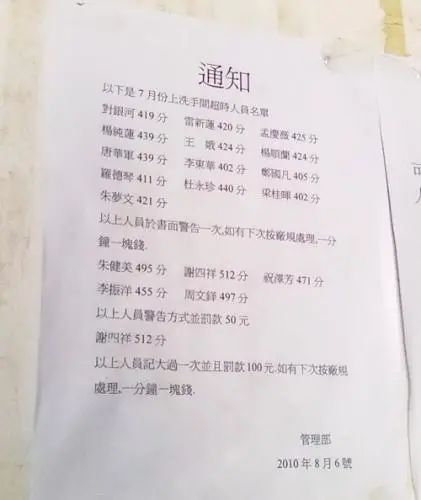 通知
以下是7月份上洗手間超時人員名單
對銀河 419 分 雷新蓮 420 分 孟慶薇 425 分
楊純蓮 439 分 王 娥 424 分 楊順蘭 424 分
唐華軍 439 分 李東華 402 分 鄭國凡 405 分
羅德琴 411 分 杜永珍 440 分 梁桂暉 402 分
朱夢文 421 分
以上人員於書面警告一次,如有下次按廠規處理,一分
鐘一塊錢.
朱健美 495 分 謝四祥 512 分 祝澤芳 471 分
李振洋 455 分 周文鋒 497 分
以上人員警告方式並罰款 50 元
謝四祥 512 分
以上人員記大過一次並且罰款 100 元.如有下次按廠規
處理,一分鐘一塊錢.
管理部
2010 年 8 月 6 號